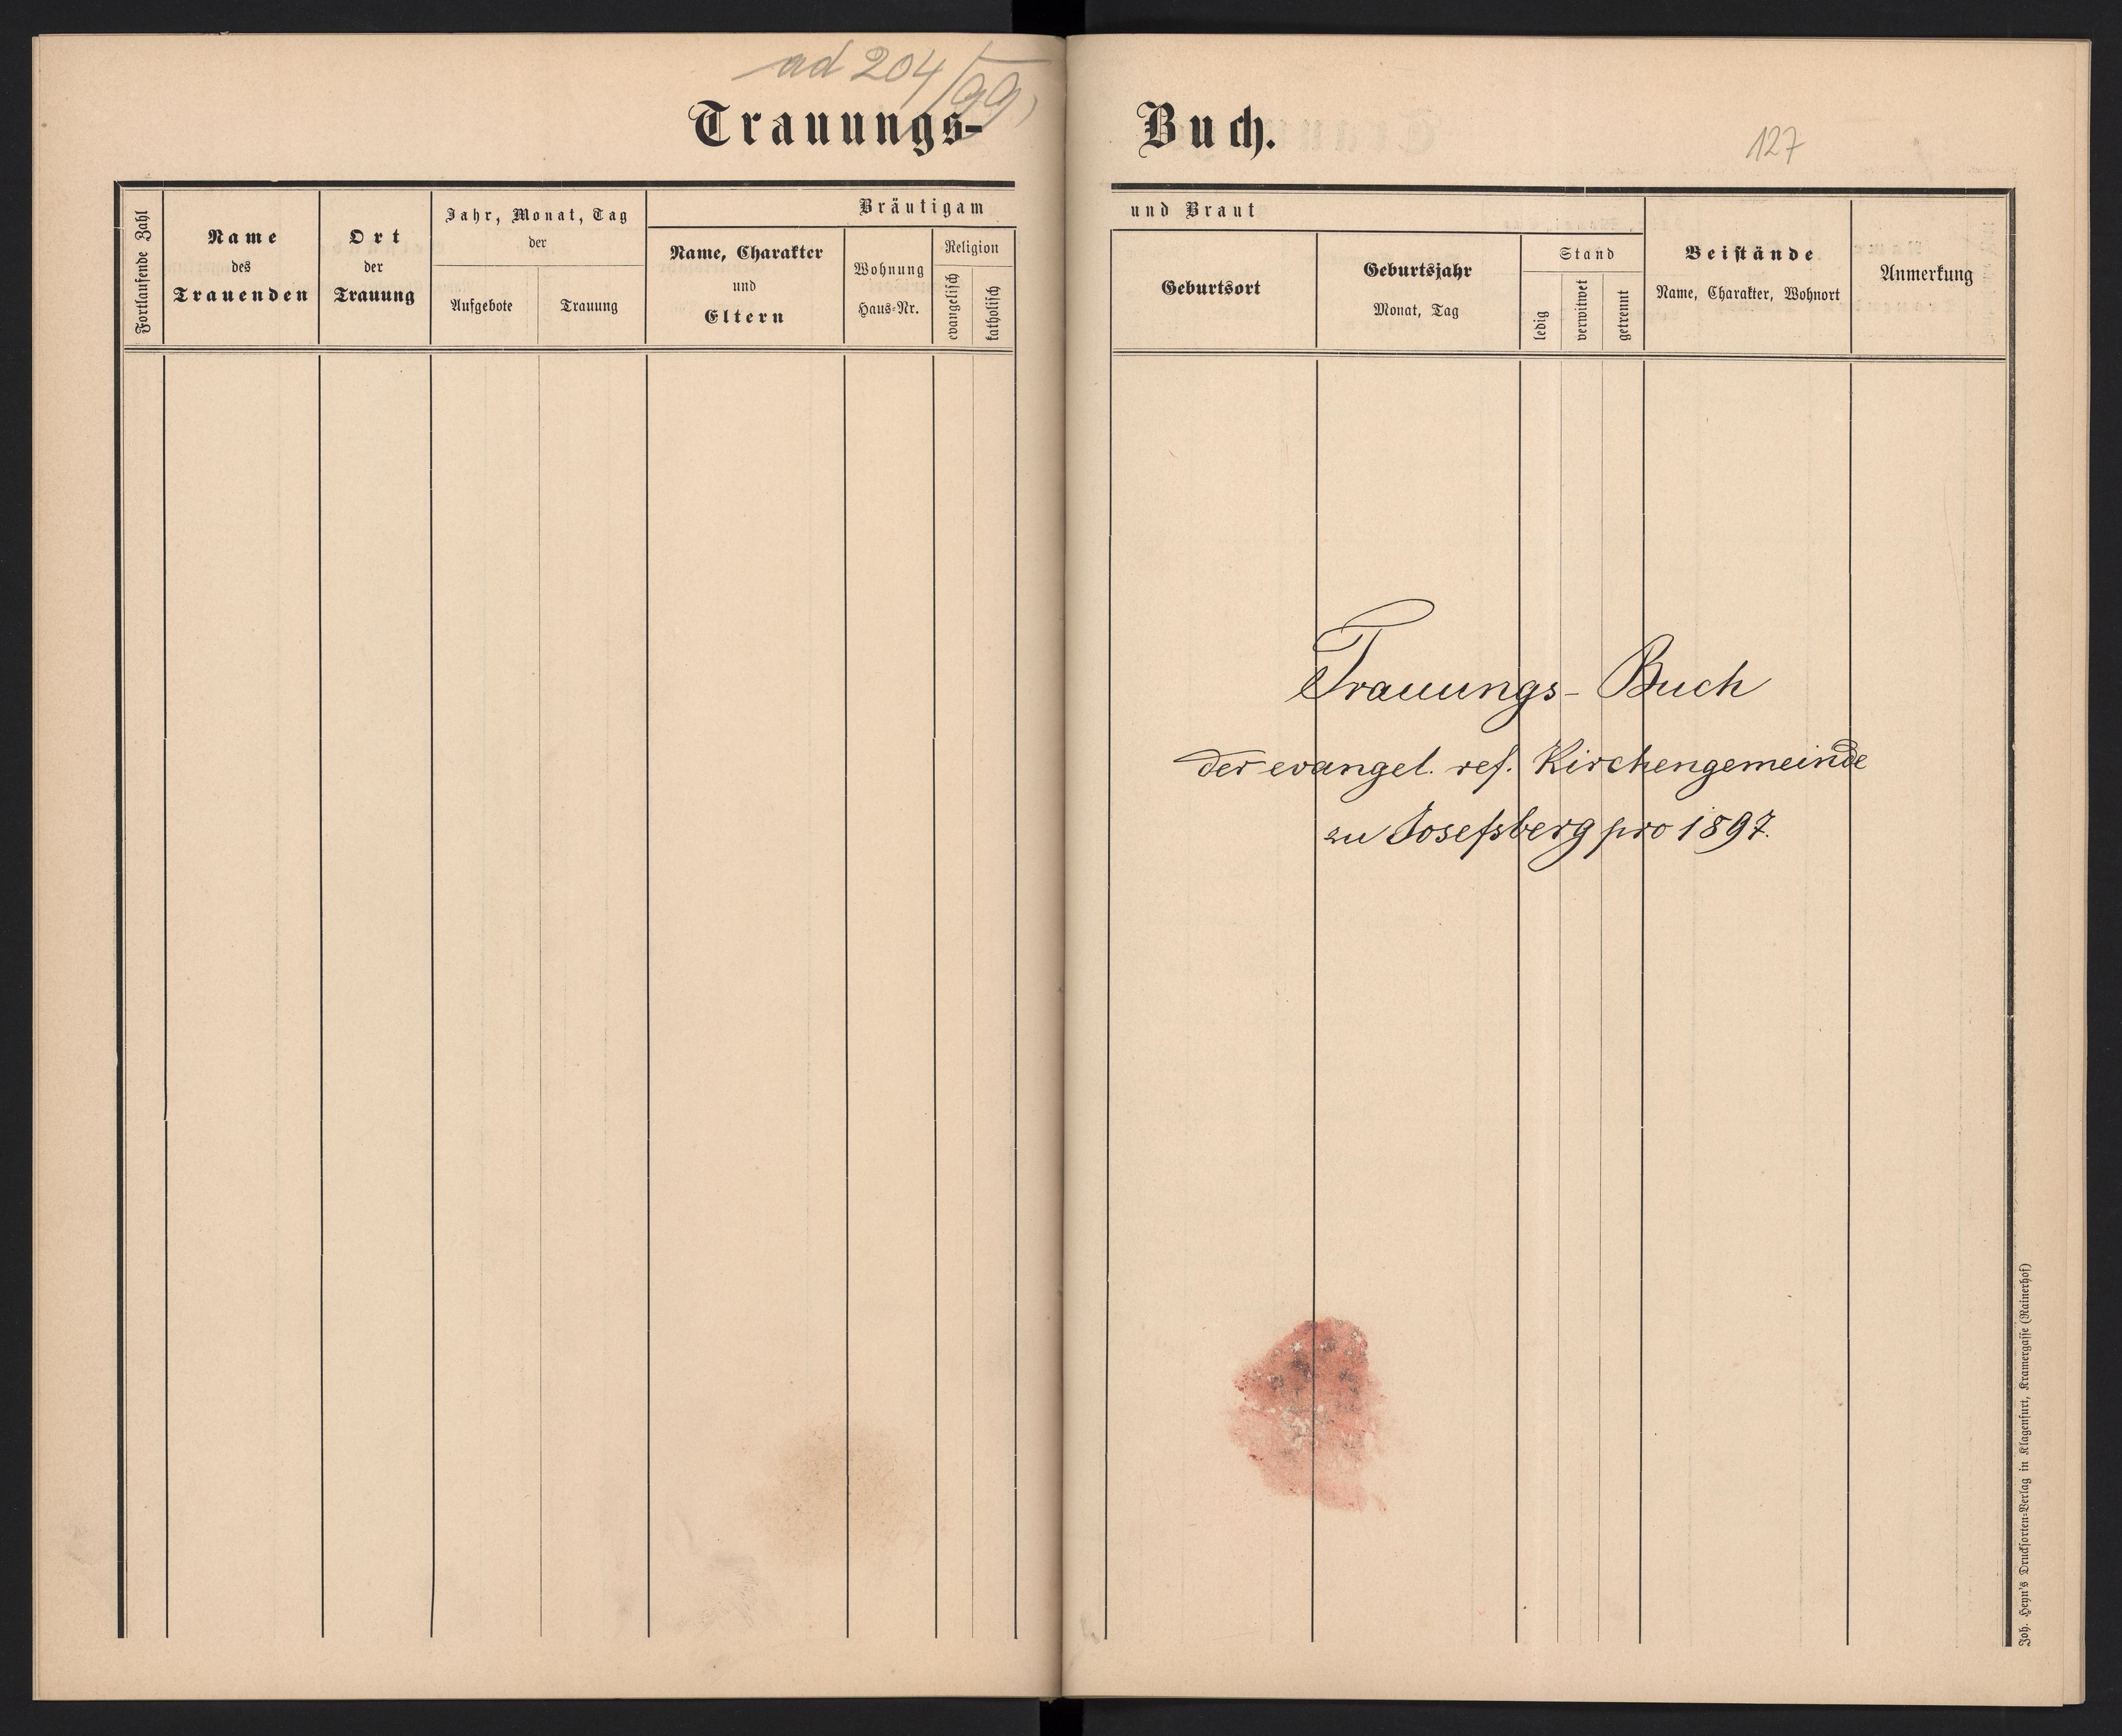 ad 204/99,
Trauungs-Buch.
127
Fortlaufende Zahl
Name
des
Trauenden
Ort
der
Trauung
Jahr, Monat, Tag
der
Aufgebote
Trauung
Bräutigam und Braut
Name, Charakter
und
Eltern
Wohnung
Haus-Nr.
Religion
evangelisch
katholisch
Geburtsort
Geburtsjahr
Monat, Tag
Stand
ledig
verwitwet
getrennt
Beistände
Name, Charakter, Wohnort
Anmerkung
Trauungs-Buch
der evangel. ref. Kirchengemeinde
zu Josefsberg pro 1897.
Joh. Heyn's Drucksorten-Verlag in Klagenfurt, Kramergasse (Rainerhof)